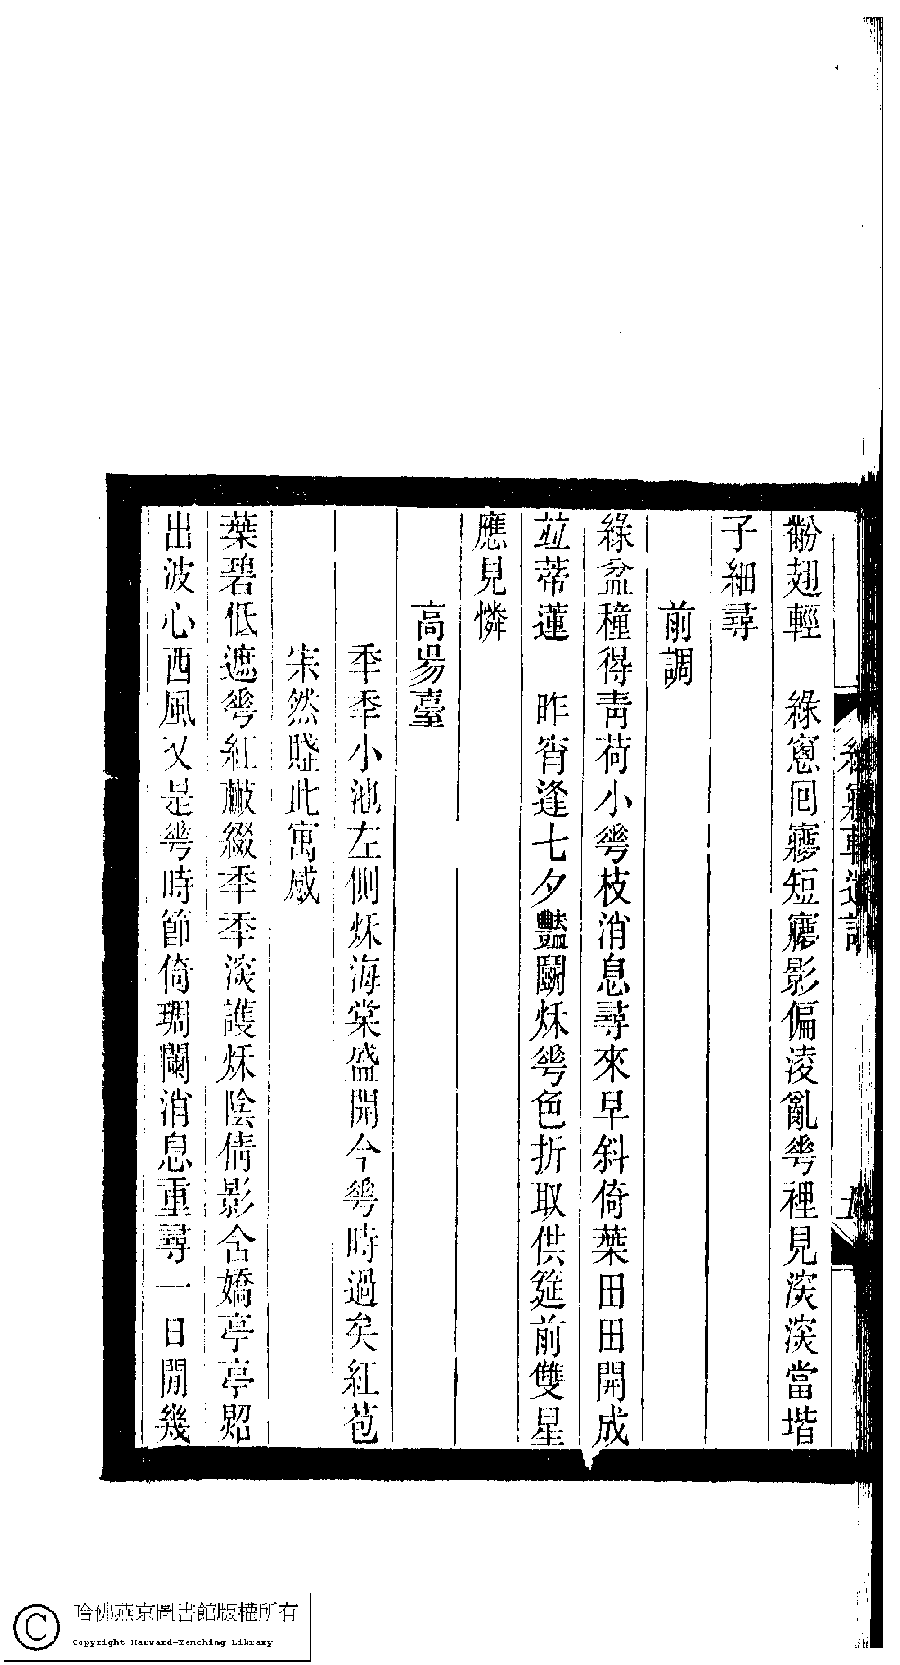 黺翅輕　綠窻回㝱短㝱影偏淩亂蕚裡見深深當堦
子細尋
前調
綠盆種得靑荷小蕚枝消息尋來早斜倚葉田田開成
竝蒂蓮　昨宵逢七夕豔鬭秌蕚色折取供筵前雙星
應見憐
高昜臺
秊秊小池左側秌海棠盛開今蕚時過矣紅苞
宋然賸此寓感
葉碧低遮蕚紅齾綴秊秊淡護秌陰倩影含嬌亭亭照
出波心西風又是蕚時節倚琱闌消息重尋一日開幾
哈佛燕京圖書館版權所有
Copyright Harvard-Yenching Library